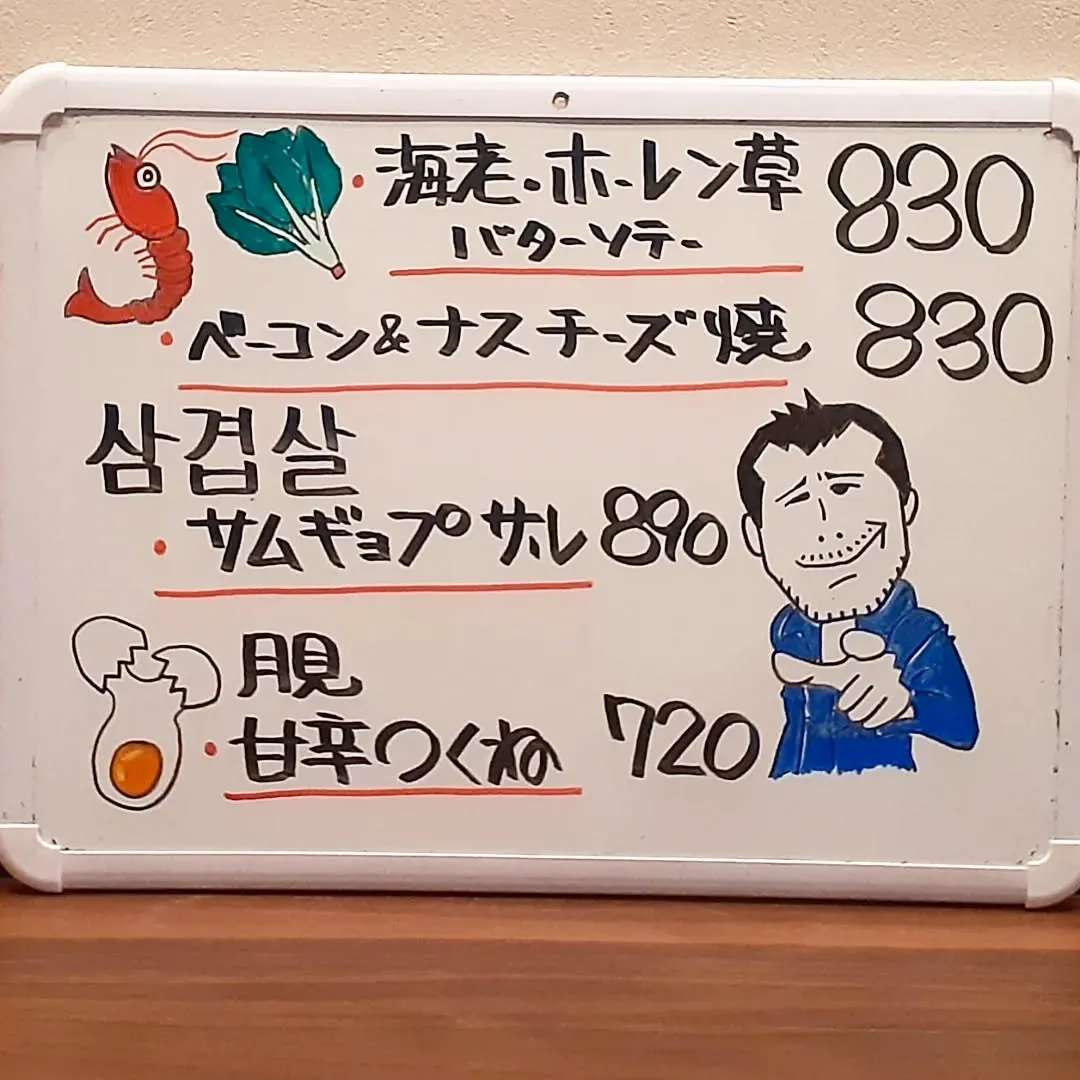 ・海老・ホーレン草 830
バターソテー
・ベーコン&ナスチーズ焼 830
삼겹살
・サムギョプサル 890
月見
・甘辛つくね 720